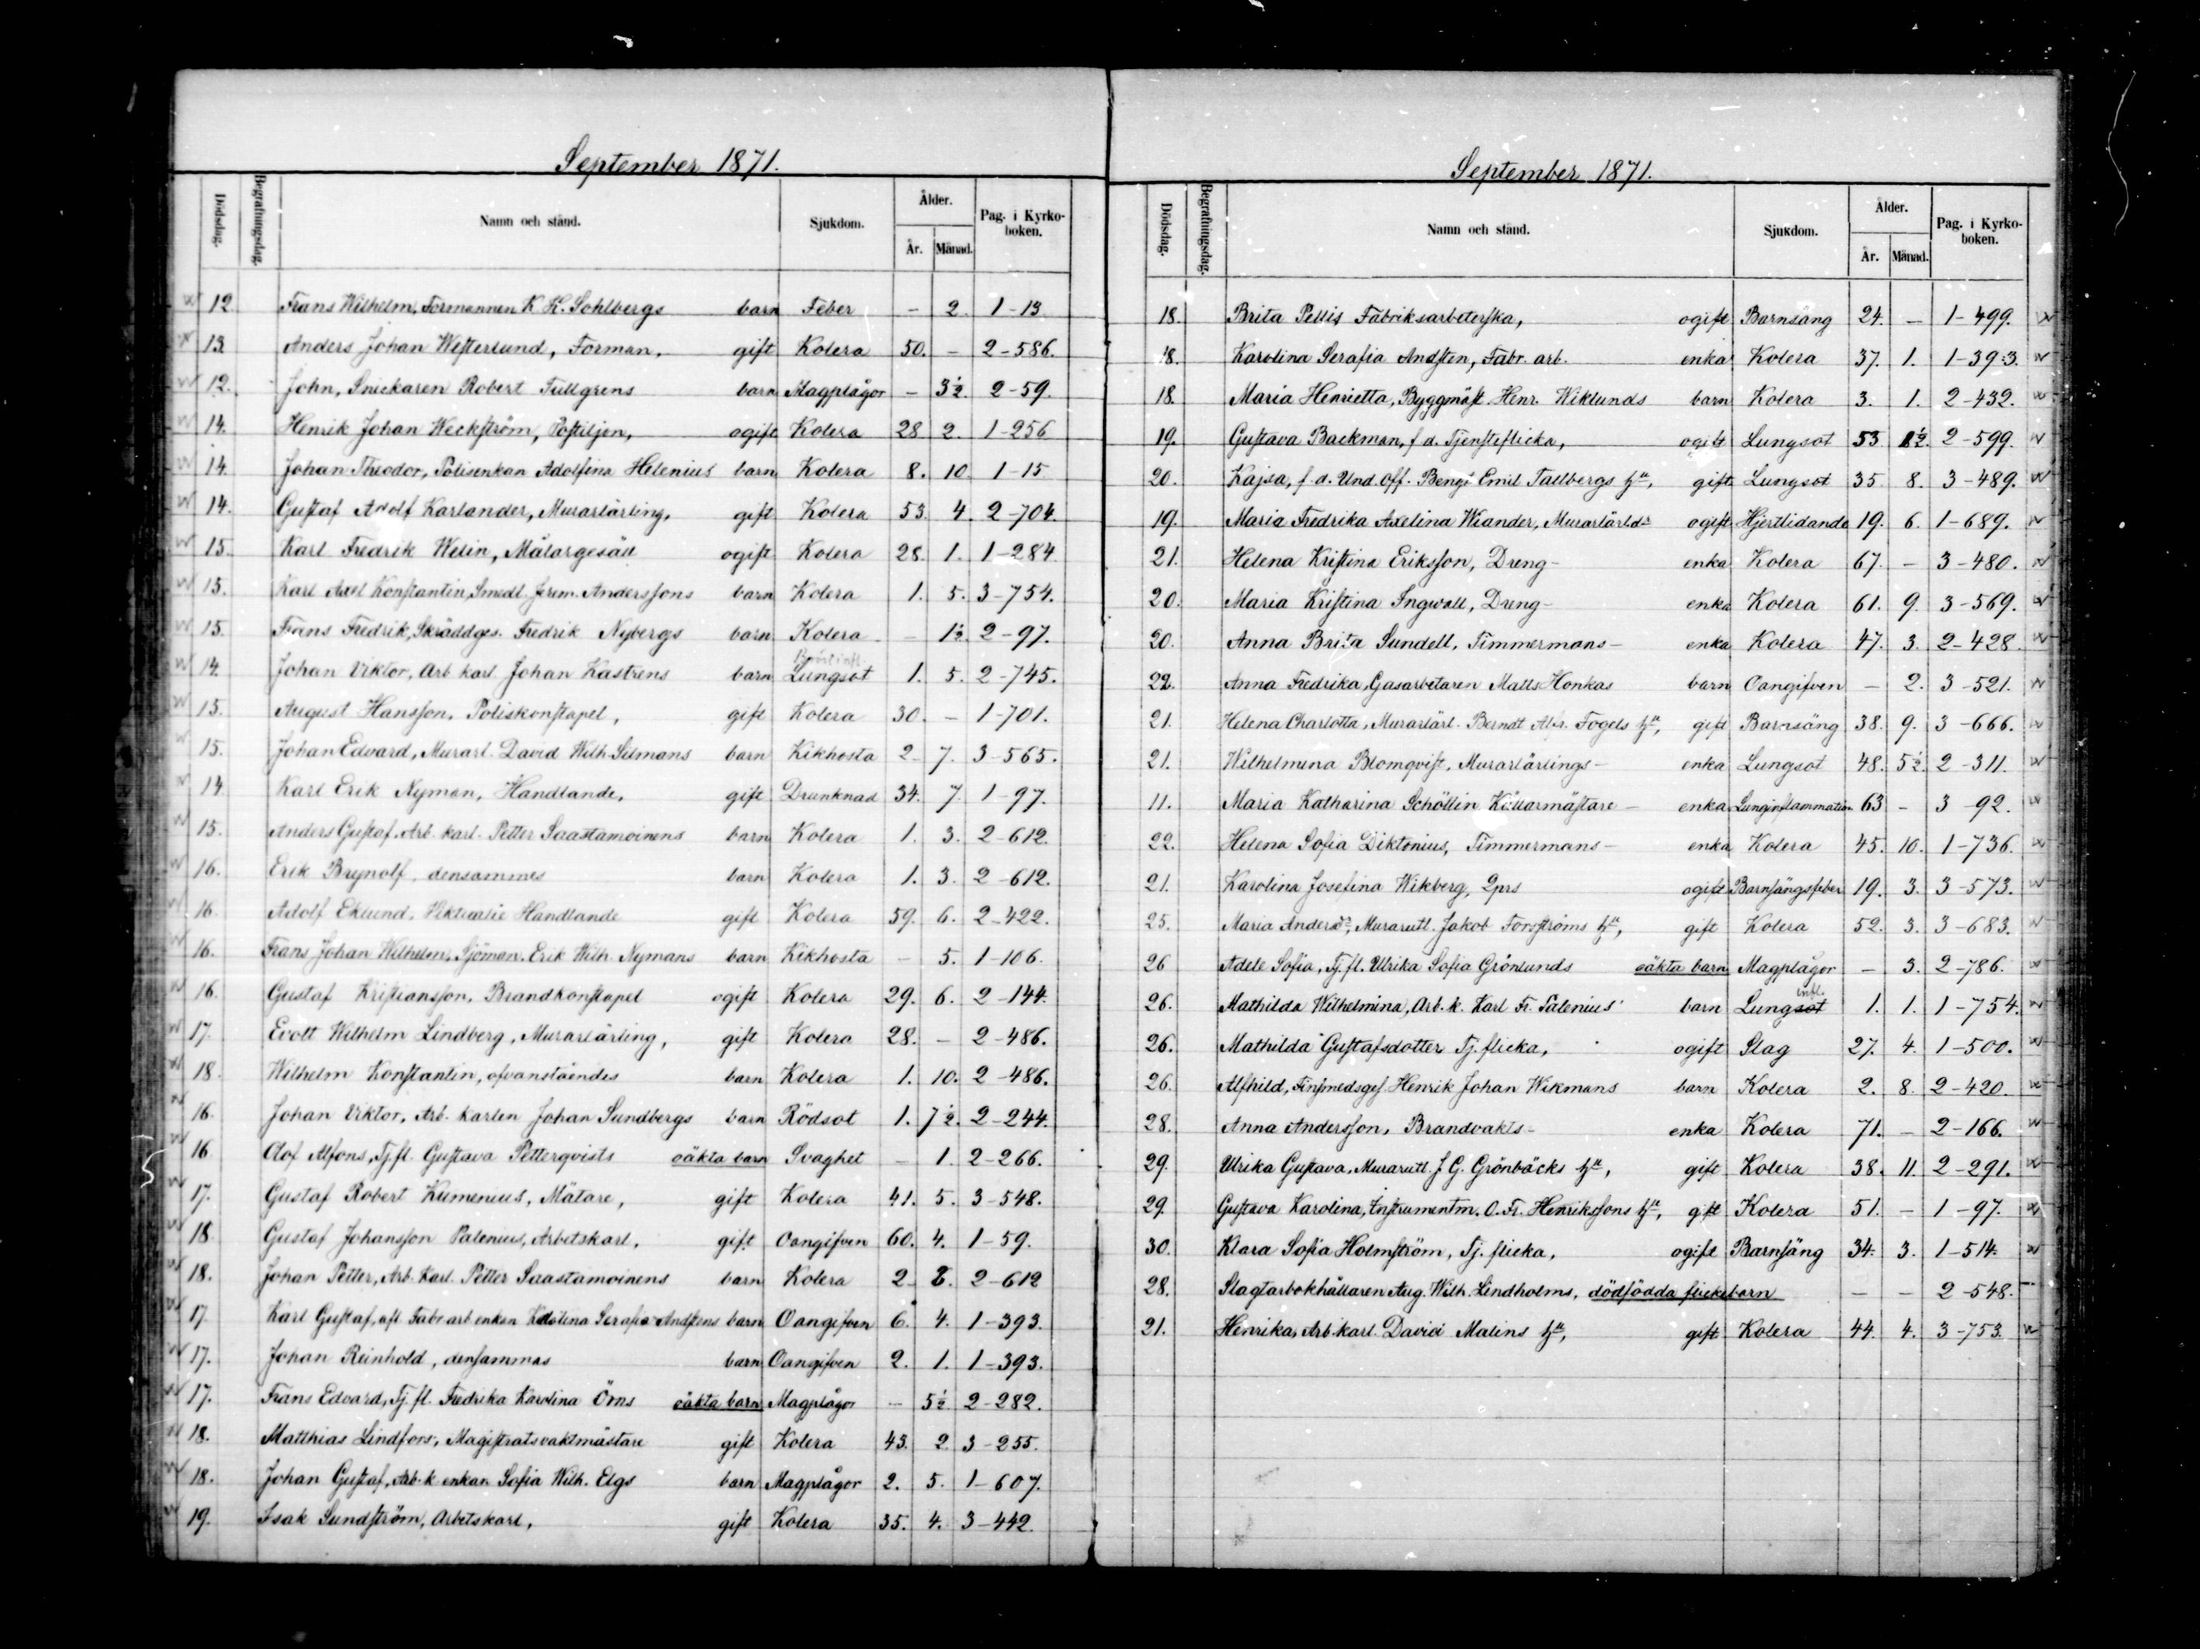 September 1871.
Dödsdag. Begrafningsdag. Namn och stånd. Sjukdom. Ålder. År. Månad. Pag. i Kyrkoboken.
12. Frans Wilhelm, Formannen K. K. Sohlbergs barn Feber – 2. 1–13
13. Anders Johan Westerlund, Forman, gift Kolera 50. – 2–586.
12. John, Snickaren Robert Tullgrens barn Magplågor – 3½. 2–59.
14. Henrik Johan Weckström, Postiljen, ogift Kolera 28 2. 1–256
14. Johan Theodor, Polisenkan Adolfina Helenius barn Kolera 8. 10. 1–15
14. Gustaf Adolf Karlander, Murarlärling, gift Kolera 53. 4. 2–704.
15. Karl Fredrik Welin, Målargesäll ogift Kolera 28. 1. 1–284
15. Karl Axel Konstantin, Smedl. Jerem. Anderssons barn Kolera 1. 5. 3–754.
15. Frans Fredrik, Skräddges. Fredrik Nybergs barn Kolera – 1½. 2–97.
14. Johan Viktor, Arb. karl Johan Kastrens barn Lungsot 1. 5. 2–745.
15. August Hansson, Poliskonstapel, gift Kolera 30. – 1–701.
15. Johan Edvard, Murarl. David Wilh. Silmans barn Kikhosta 2. 7. 3–565.
14 Karl Erik Nyman, Handlande, gift Drunknad 34. 7. 1–97.
15. Anders Gustaf, Arb. karl. Petter Saastamoinens barn Kolera 1. 3. 2–612.
16. Erik Brynolf, densammes barn Kolera 1. 3. 2–612.
16. Adolf Eklund, Viktualie Handlande gift Kolera 59. 6. 2–422.
16. Frans Johan Wilhelm, Sjöman. Erik Wilh. Nymans barn Kikhosta – 5. 1–106.
16. Gustaf Kristiansson, Brandkonstapel ogift Kolera 29. 6. 2–144.
17. Evolt Wilhelm Lindberg, Murarlärling, gift Kolera 28. – 2–486.
18. Wilhelm Konstantin, ofvanståendes barn Kolera 1. 10. 2–486.
16. Johan Viktor, Arb. karlen Johan Sundbergs barn Rödsot 1. 7½. 2–244.
16. Olof Alfons, Tj. fl. Gustava Petterqvists oäkta barn Svaghet – 1. 2–266.
17. Gustaf Robert Kumenius, Målare, gift Kolera 41. 5. 3–548.
18. Gustaf Johansson Palenius, Arbetskarl, gift Oangifven 60. 4. 1–59.
18. Johan Petter, Arb. karl. Petter Saastamoinens barn Kolera 2 2–612
17. Karl Gustaf, afl. Fabr. arb. enkan Karolina Serafia Andstens barn Oangifven 6. 4. 1–393.
17. Johan Reinhold, densammas barn Oangifven 2. 1. 1–393.
17. Frans Edvard, Tj. fl. Fredrika Karolina Örns oäkta barn Magplågor – 5½ 2–282.
18. Matthias Lindfors, Magistratsvaktmästare gift Kolera 43. 2 3–255.
18. Johan Gustaf, Arb. k. enkan Sofia Wilh. Elgs barn Magplågor 2. 5. 1–607.
19. Isak Sundström, Arbetskarl, gift Kolera 35. 4. 3–442.
September 1871.
Dödsdag. Begrafningsdag. Namn och stånd. Sjukdom. Ålder. År. Månad. Pag. i Kyrkoboken.
18. Brita Pellis Fabriksarbeterska, ogift Barnsäng 24. – 1–499.
18. Karolina Serafia Andsten, Fabr. arb. enka Kolera 37. 1. 1–393.
18. Maria Henrietta, Byggmäst. Henr. Wiklunds barn Kolera 3. 1. 2–432.
19. Gustava Backman, f. d. Tjensteflicka, ogift Lungsot 53 2–599.
20. Kajsa, f. d. Und. off. Bengt Emil Tallbergs hu, gift Lungsot 35 8. 3–489.
19. Maria Fredrika Axelina Wiander, Murarlärl.dr ogift Hjertlidande 19. 6. 1–689.
21. Helena Kristina Eriksson, Dreng– enka Kolera 67. – 3–480.
20. Maria Kristina Ingwall, Dreng– enka Kolera 61. 9. 3–569.
20. Anna Brita Sundell, Timmermans– enka Kolera 47. 3. 2–428.
22. Anna Fredrika, Gasarbetaren Matts Honkas barn Oangifven – 2. 3–521.
21. Helena Charlotta, Murarlärl. Berndt Alfr. Fogels hu, gift Barnsäng 38. 9. 3–666.
21. Wilhelmina Blomqvist, Murarlärlings– enka Lungsot 48. 5½. 2–311.
11. Maria Katharina Schöllin Källarmästare– enka Lunginflammation 63 – 3–92.
22. Helena Sofia Diktonius, Timmermans– enka Kolera 45. 10. 1–736.
21. Karolina Josefina Wikberg, 2prs ogift Barnsängsfeber 19. 3. 3–573.
25. Maria Andersdr, Murarutl. Jakob Forsströms hu, gift Kolera 52. 3. 3–683.
26 Adele Sofia, Tj. fl. Ulrika Sofia Grönlunds oäkta barn Magplågor – 3. 2–786.
26. Mathilda Wilhelmina, Arb. k. Karl Fr. Palenius' barn Lungsot infl. 1. 1. 1–754.
26. Mathilda Gustafsdotter Tj. flicka, ogift Slag 27. 4. 1–500.
26. Alfhild, Finsmedsges. Henrik Johan Wikmans barn Kolera 2. 8. 2–420.
28. Anna Andersson, Brandvakts– enka Kolera 71. – 2–166.
29. Ulrika Gustava, Murarutl. J. G. Grönbäcks hu, gift Kolera 38. 11. 2–291.
29. Gustava Karolina, Instrumentm. O. Fr. Henrikssons hu, gift Kolera 51. – 1–97.
30. Klara Sofia Holmström, Tj. flicka, ogift Barnsäng 34. 3. 1–514.
28. Slagtarbokhållaren Aug. Wilh. Lindholms, dödfödda flickebarn – – 2–548.
21. Henrika, Arb. karl. David Malins hu, gift Kolera 44. 4. 3–753.